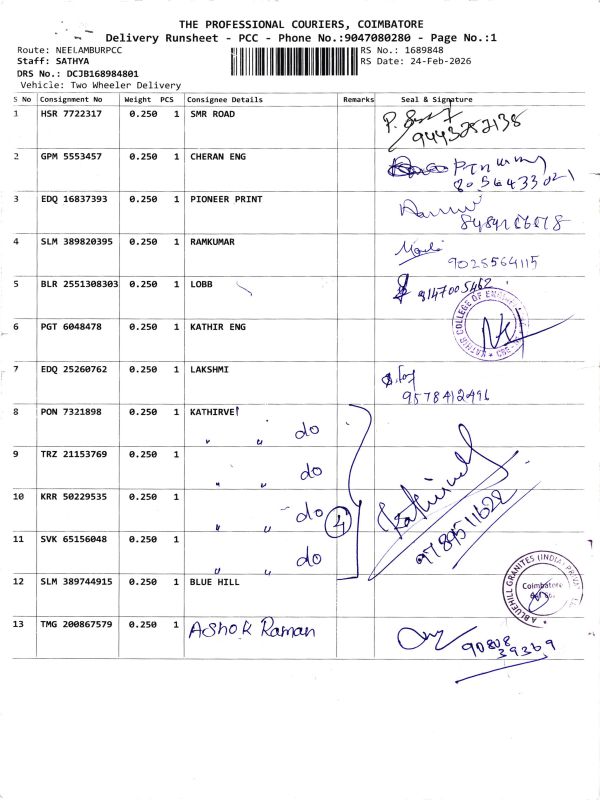 THE PROFESSIONAL COURIERS, COIMBATORE
Delivery Runsheet - PCC - Phone No.:9047080280 - Page No.:1
Route: NEELAMBURPCC RS No.: 1689848
Staff: SATHYA RS Date: 24-Feb-2026
DRS No.: DCJB168984801
Vehicle: Two Wheeler Delivery
S No Consignment No Weight PCS Consignee Details Remarks Seal & Signature
1 HSR 7722317 0.250 1 SMR ROAD
9443252138
2 GPM 5553457 0.250 1 CHERAN ENG
8056433021
3 EDQ 16837393 0.250 1 PIONEER PRINT
4 SLM 389820395 0.250 1 RAMKUMAR
9025564115
5 BLR 2551308303 0.250 1 LOBB
9147005462
6 PGT 6048478 0.250 1 KATHIR ENG
KATHIR COLLEGE OF
7 EDQ 25260762 0.250 1 LAKSHMI
9578412496
8 PON 7321898 0.250 1 KATHIRVEl
" " do
9 TRZ 21153769 0.250 1
" " do
10 KRR 50229535 0.250 1
" " do 4
Kathirvel
9789511628
11 SVK 65156048 0.250 1
" " do
12 SLM 389744915 0.250 1 BLUE HILL
BLUEHILL GRANITES (INDIA)
Coimbatore
13 TMG 200867579 0.250 1 Ashok Raman
90808
39369